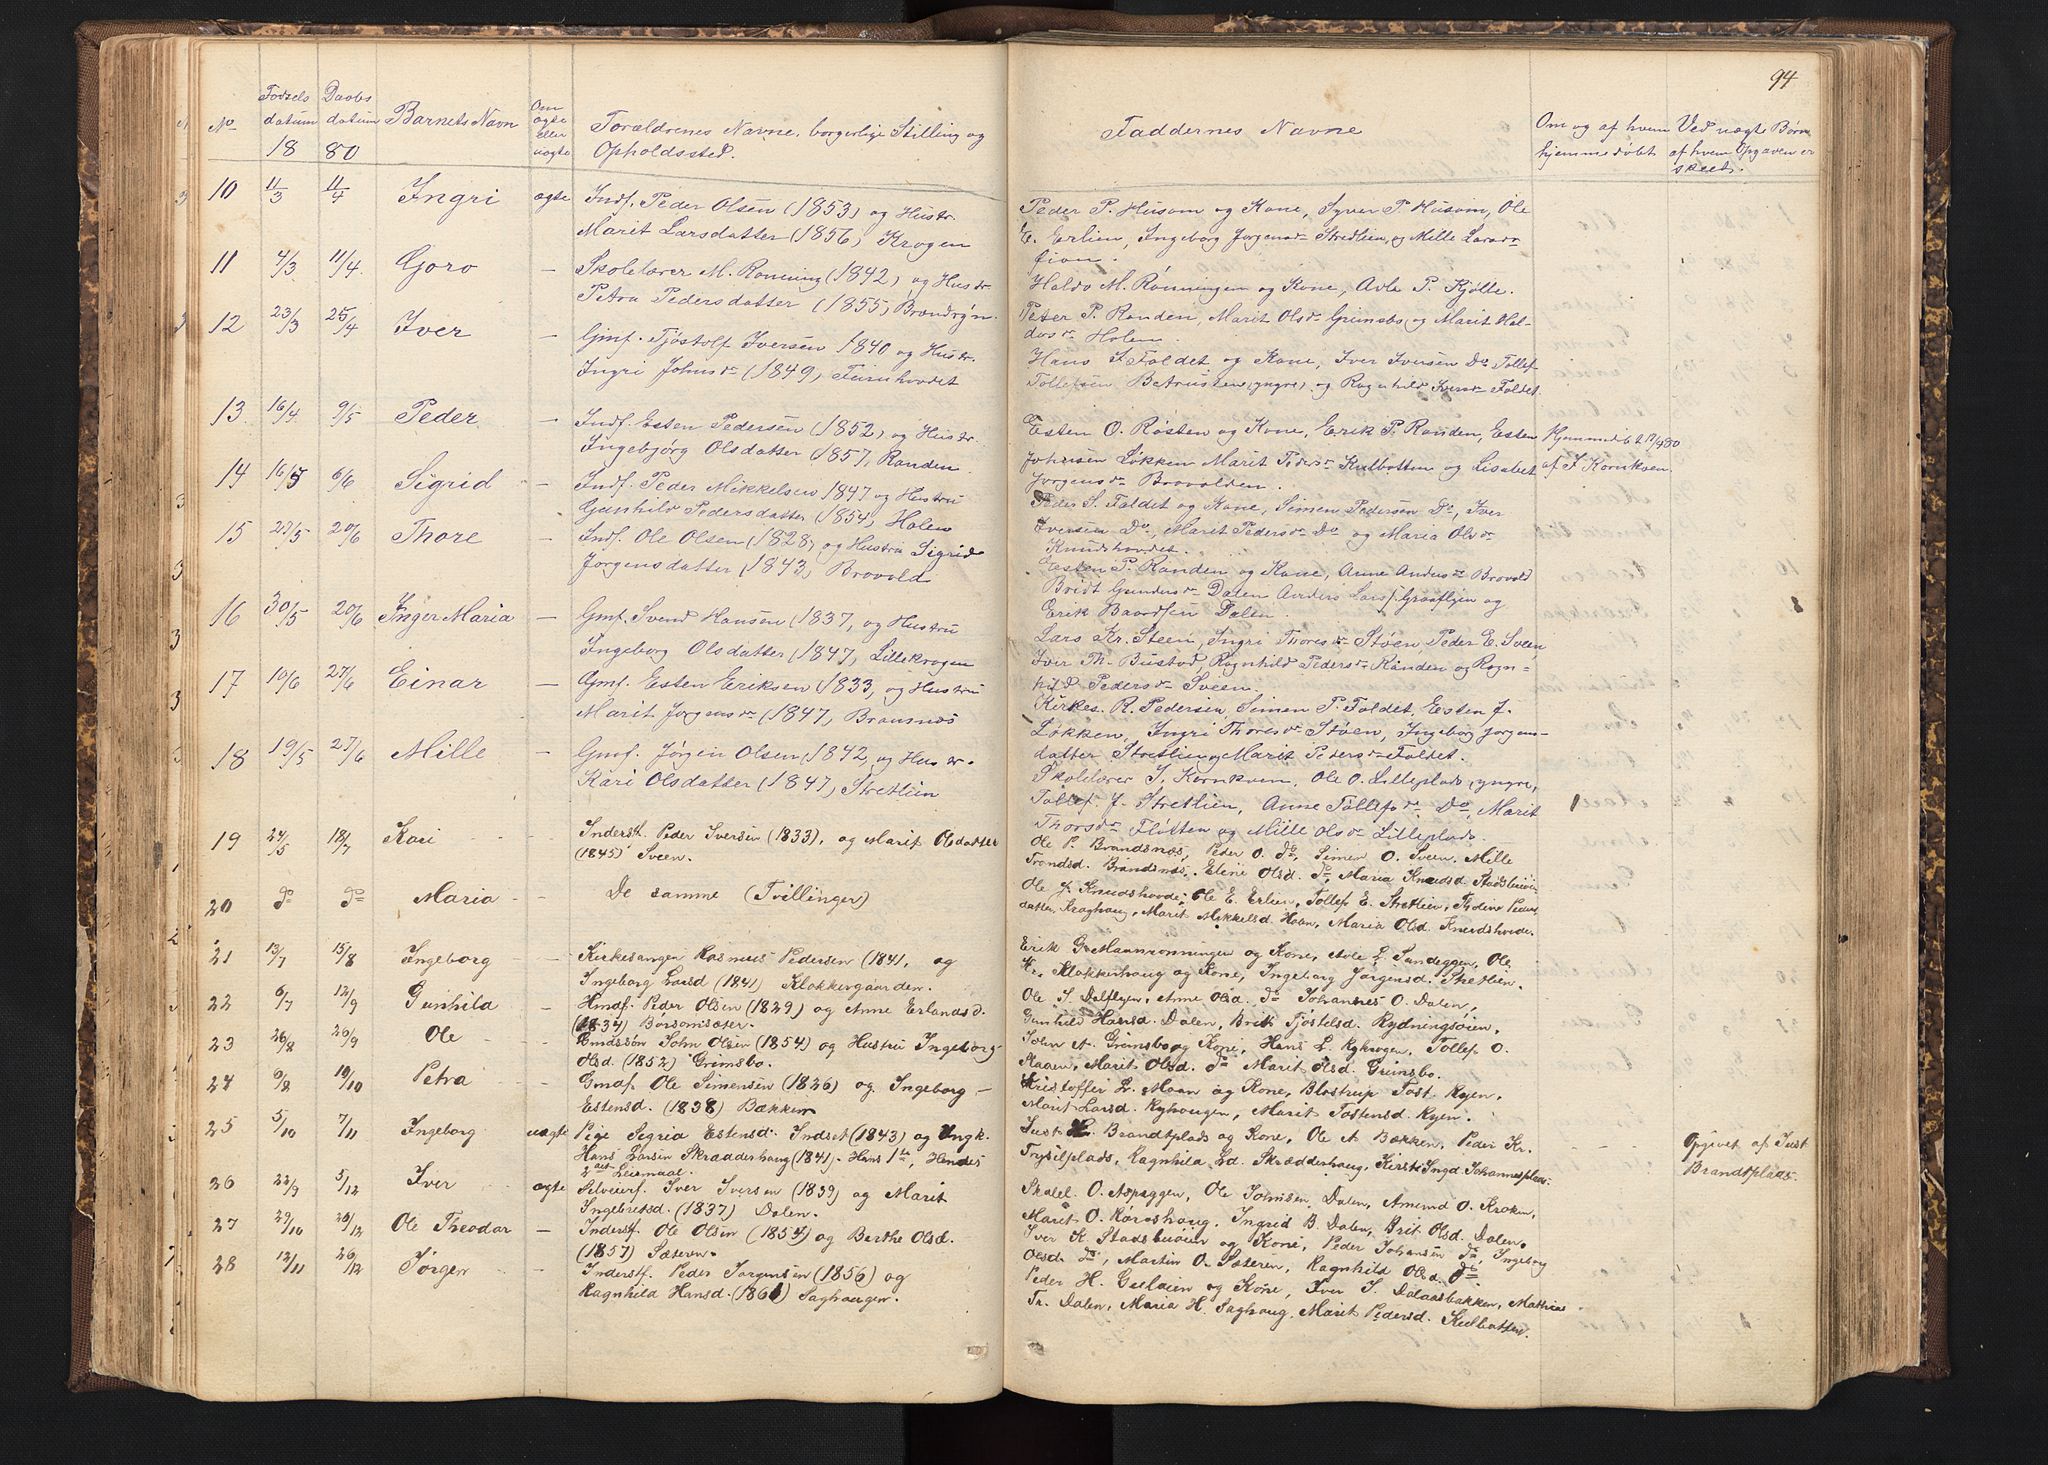 94
No
Fødsels datum
Daabs datum
18 80
Barnets Navn
Om ægte eller uægte
Forældrenes Navne, borgerlige Stilling og
Opholdssted.
Faddernes Navne
Om og af hvem
hjemmedøbt
Ved uægte Børn
af hvem Opgaven er
skeet.
10 11/3 11/4 Ingri ægte Indf. Peder Olsen (1853) og Hustr.
Marit Larsdatter (1856) Krogen
Peder P. Husom og Kone, Syver P. Husom, Ole
E. Erlien, Ingeborg Jorgensdr Stretlien, og Mille Larsdr
11 4/3 11/4. Goro — Skolelærer M. Ronning (1842) og Hustr.
Petra Pedersdatter (1855) Brændryn.
Haldo M. Rønningen og Kone, Avle P. Kjølle.
Peter P. Randen, Marit Olsdr Grimsbo, og Marit Hal-
dosdr Holen.
12 23/3 25/4 Iver — Gmf. Tjøstolf Iversen 1840 og Hustr.
Ingri Johnsdr (1849) Feirihovdet
Hans S. Foldet og Kone, Iver Iversen Do Tollef
Tollefsen (yngre) og Ragnhild Iversdr Foldet.
13. 16/4. 9/5 Peder — Indf. Esten Pedersen (1852) og Hustr.
Ingebjørg Olsdatter (1857) Randen.
Esten O. Røsten og Kone, Erik P. Randen, Esten
Johnsen Løkken Marit Pedersdr Kulbotten og Lisabet
Jorgensdr Brovolden.
Hjemmedøbt 17/4 80
af I Kornkven.
14 16/5 6/6 Sigrid — Indf. Peder Mikkelsen 1847 og Hustru
Gunhild Pedersdatter (1854) Holen
Peder S. Foldet og Kone, Simen Pedersen Do, Iver
Iversen Do, Marit Pedersdr Do og Maria Olsdr
Knudshovdet.
15 27/5 20/6 Thore — Indf. Ole Olsen (1828) og Hustru Sigrid
Jorgensdatter (1843) Brovold
Esten P. Randen og Kone, Anne Andersdr Brovold
Bridt Gundersdr Dalen Anders Larss. Graaflyen og
Erik Baardsen Dalen.
16 30/5 20/6 Inger Maria — Gmf. Svend Hansen (1837, og Hustru
Ingeborg Olsdatter (1847, Lillekrogen
Lars Kr. Steen, Ingri Thoresdr Støen, Peder E. Sveen,
Iver Th. Bustad, Ragnhild Pedersdr Randen og Ragn-
hild Pedersdr Sveen.
17 10/6 27/6 Einar — Gmf. Esten Eriksen (1833, og Hustru
Marit Jorgensdr (1847, Bransnæs
Kirkes. R. Pedersen, Simen P. Foldet, Esten J.
Løkken, Ingri Thoresdr Støen, Ingeborg Jorgens-
datter Stretlien og Marit Pedersdr Foldet.
18 19/5 27/6 Mille — Gmf. Jørgen Olsen (1842, og Hustr.
Kari Olsdatter (1847) Stretlien
Skolelærer I. Kornkven, Ole O. Lilleplads, yngre,
Tollef J. Stretlien, Anne Tollefsdr Do, Marit
Thorsdr Fløtten og Mille Olsdr Lilleplads.
19 24/5 18/7 Kari - Inderstf. Peder Iversen (1833), og Marit Olsdatter
(1845) Sveen.
Ole P. Brandsnæs, Peder O. do, Simen O. Sveen, Mille
Trondsd. Brandsnæs, Eline Olsd. do, Maria Knudsd. Stadsbuøien
20 do do Maria - De samme (Tvillinger)
Ole J. Knudshovde, Ole E. Erlien, Tollef E. Stretlien, Peders-
datter, Kraghaug, Marit Mikkelsd. Haan, Maria Olsd. Knudshovde.
21 13/7 15/8 Ingeborg - Kirkesanger Rasmus Pedersen (1841, og
Ingeborg Larsd (1841) Klokkergaarden.
Erik G. Maanronningen og Kone, Avle L. Sandeggen, Ole
Kr. Klokkerhaug og Kone, Ingeborg Jørgensd. Stretlien.
22 6/7 12/9 Gunhild — Hmdf. Peder Olsen (1829) og Anne Erlandsd.
(1834) Børsomsæter.
Ole S. Dalflyen, Anne Olsd. do Johannes O. Dalen,
Gunhild Hansd. Dalen, Brit Tjøstelsd. Rydningsøien.
23 26/8 26/9 Ole - John Olsen (1854) og Hustru Ingeborg
Olsd. (1852) Grimsbo.
John A. Grimsbo og Kone, Hans L. Rykrogen, Tollef O.
Aaen, Marit Olsd. do Marit Olsd. Grimsbo.
24 9/8 10/10 Petra - Gmdf. Ole Simensen (1826) og Ingeborg
Estensd. (1838) Bækken
Kristoffer L. Moan og Kone, Blostrup Tost. Ryen,
Marit Larsd. Ryhaugen, Marit Tostensd. Ryen.
25 5/10 7/11 Ingeborg uægte Pige Segria Estensd. Indset (1843) og Ungk.
Hans Larsen Skrædderhaug (1841). Hans 1ste, Hendes
2det Leiermaal.
Just H. Brandtplads og Kone, Ole A. Bækken, Peder Kr.
Trysilplads, Ragnhild Ld. Skrædderhaug, Kirsti Ingd. Johannesplads.
Opgivet af Just
Brandtplads.
26 22/9 5/12 Iver ægte Selveierf. Iver Iversen (1839) og Marit
Ingebretsd. (1837) Dalen.
Skolel. O. Aspeggen, Ole Johnsen Dalen, Amund O. Kroken,
Marit O. Røroshaug, Ingrid B. Dalen, Brit Olsd. Dalen.
27 29/10 26/12 Ole Theodor — Inderstf. Ole Olsen (1854) og Berthe Olsd.
(1857) Sæteren.
Iver K. Stadsbuøien og Kone, Peder Johansen do, Ingeborg
Olsd. do, Martin O. Sæteren, Ragnhild Olsd. do.
28 12/11 26/12 Jørgen - Inderstf. Peder Jørgensen (1856) og
Ragnhild Hansd. (1861) Saghaugen.
Peder H. Grelaien og Kone, Iver S. Dalaasbakken, Mathias
Tr. Dalen, Maria H. Saghaug, Marit Pedersd. Kulbotten.